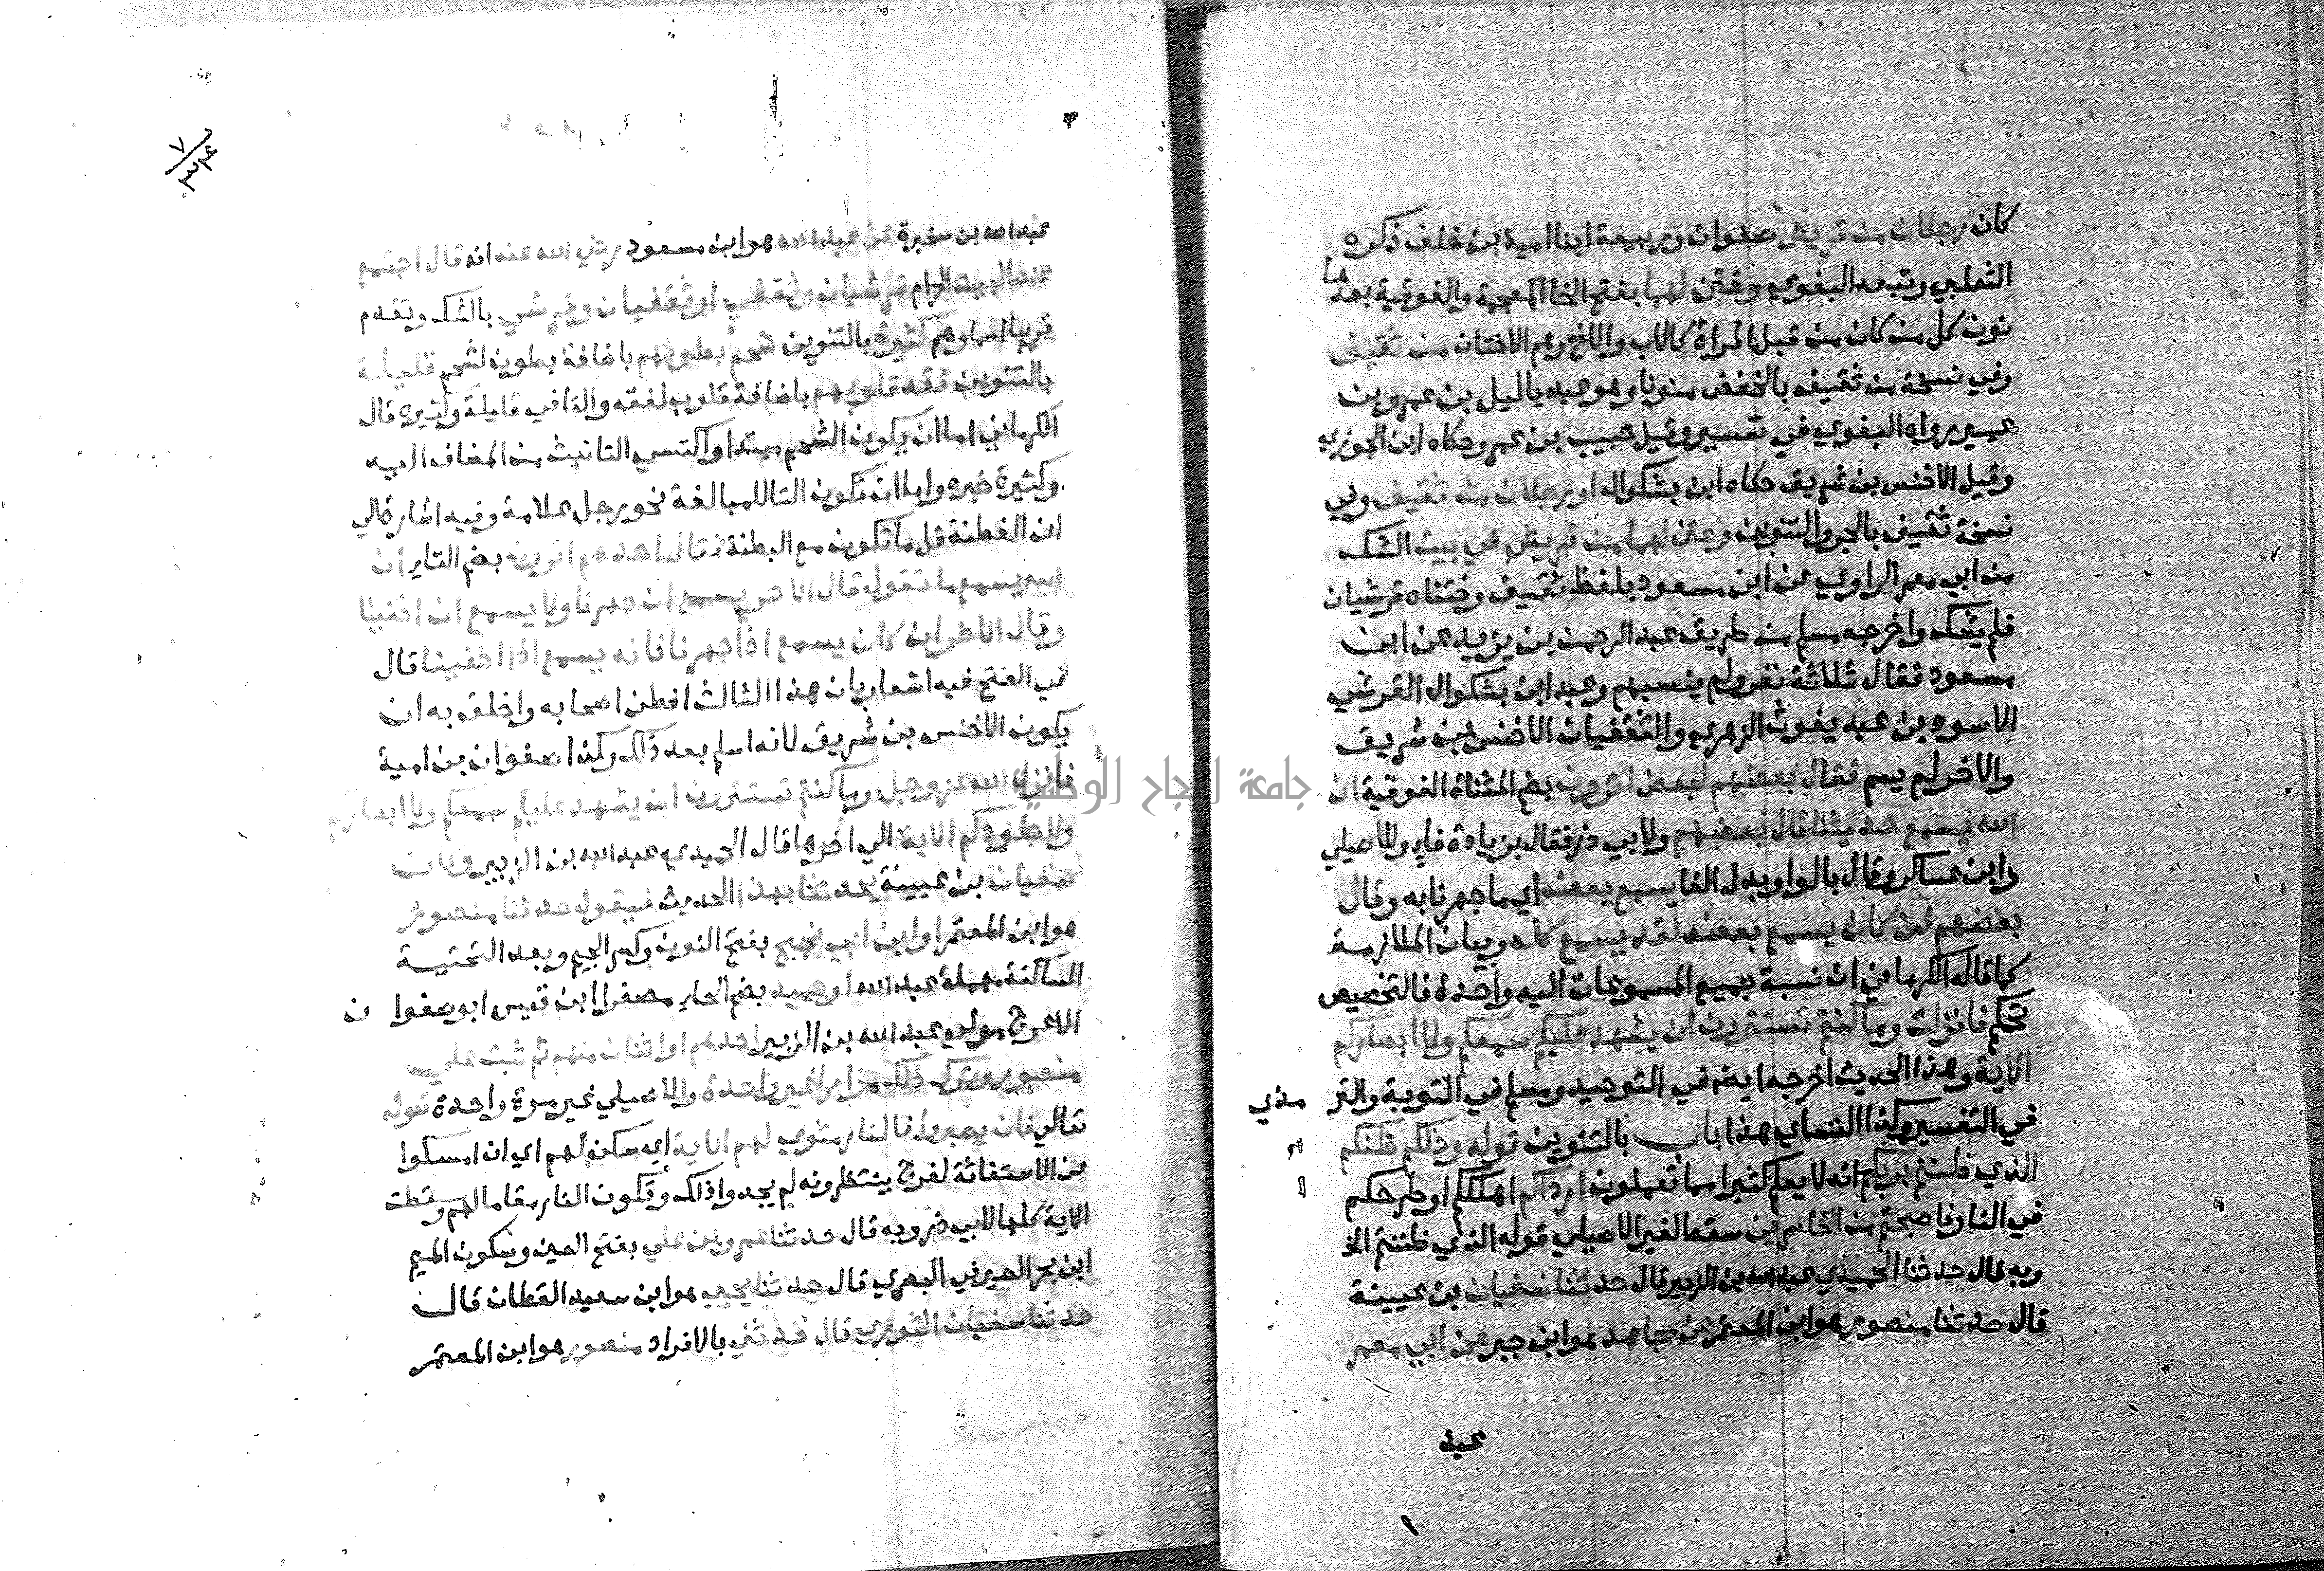 كان رجلان من قريش صفوان وربيعة ابنا امية بن خلف ذكره
الثعلبي وتبعه البغوي وختن لهما بفتح الخا المعجمة والفوقية بعدها
نون كل من كان من قبل المراة كالاب والاخ وهم الاختان من ثقيف
وفي نسخة من ثقيف بالخفض منونا وهو عبد ياليل بن عمرو بن
عمير رواه البغوي في تفسير وقيل حبيب بن عمرو حكاه ابن الجوزي
وقيل الاخنس بن شريق حكاه ابن بشكوال او رجلان من ثقيف وفي
نسخة ثقيف بالجر والتنوين وختن لهما من قريش في بيت الشك
من ابي معمر الراوي عن ابن مسعود بلفظ ثقيف وختناه قرشيان
فلم يشك واخرجه مسلم من طريق عبد الرحمن بن يزيد عن ابن
مسعود فقال ثلاثة نفر ولم ينسبهم وعند ابن بشكوال القرشي
الاسود بن عبد يغوث الزهري والثقفيان الاخنس بن شريق
والاخر لم يسم فقال بعضهم لبعض اترون بضم المثناة الفوقية ان
الله يسمع حديثنا قال بعضهم ولابي ذر فقال بزيادة فاء وللاصيلي
وابن عساكر وقال بالواو بدل الفا يسمع بعضه اي ما جهرنا به وقال
بعضهم لئن كان يسمع بعضه لقد يسمع كله وبيان الملازمة
كما قاله الكرماني ان نسبة جميع المسموعات اليه واحدة فالتخصيص
تحكم فانزلت وما كنتم تستترون ان يشهد عليكم سمعكم ولا ابصاركم
الاية وهذا الحديث اخرجه ايضم في التوحيد ومسلم في التوبة والتر مذي
في التفسير وكذا النساي هذا باب بالتنوين قوله وذلكم ظنكم
الذي ظننتم بربكم انه لا يعلم كثيرا مما تعملون ارداكم اهلككم او طرحكم
في النار فاصبحتم من الخاسرين سقط لغير الاصيلي قوله الذي ظننتم الخ
وبه قال حدثنا الحميدي عبد الله بن الزبير قال حدثنا سفيان بن عيينة
قال حدثنا منصور هو ابن المعتمر عن مجاهد هو ابن جبر عن ابي معمر
عبد
٧
عبد الله بن سخبرة عن عبد الله هو ابن مسعود رضي الله عنه انه قال اجتمع
عند البيت الحرام قرشيان وثقفي او ثقفيان وقرشي بالشك وتقدم
قريبا اسماوهم كثيرة بالتنوين شحم بطونهم باضافة بطون لشحم قليلة
بالتنوين فقه قلوبهم باضافة قلوب لفقه والتا في قليلة وكثيره قال
الكرماني اما ان يكون الشحم مبتدا واكتسى التانيث من المضاف اليه
وكثيرة خبره واما ان تكون التا للمبالغة نحو رجل علامة وفيه اشارة الي
ان الفطنة قل ما تكون مع البطنة فقال احدهم اترون بضم التاء ان
الله يسمع ما تقول قال الاخر يسمع ان جهرنا ولا يسمع ان اخفينا
وقال الاخر ان كان يسمع اذا جهرنا فانه يسمع اذا اخفينا قال
في الفتح فيه اشعار بان هذا الثالث افطن اصحابه واخلق به ان
يكون الاخنس بن شريق لانه اسلم بعد ذلك وكذا صفوان بن امية
فانزل الله عز وجل وما كنتم تستترون ان يشهد عليكم سمعكم ولا ابصاركم
ولا جلودكم الاية الي اخرها قال الحميدي عبد الله بن الزبير وكان
سفيان بن عيينة يحدثنا بهذا الحديث فيقول حدثنا منصور
هو ابن المعتمر او ابن ابي نجيح بفتح النون وكسر الجيم وبعد التحتية
الساكنة مهملة عبد الله او حميد بضم الحاء مصغرا ابن قيس ابو صفوا ن
الاعرج مولي عبد الله بن الزبير احدهم او اثنان منهم ثم ثبت علي
منصور وترك ذلك مرارا غير واحدة وللاصيلي غير مرة واحدة قوله
تعالي فان يصبروا فالنار مثوي لهم الاية اي سكن لهم اي ان امسكوا
عن الاستغاثة لفرج ينتظرونه لم يجدوا ذلك وتكون النار مقاما لهم وسقطت
الاية كلها لابي ذر وبه قال حدثنا عمرو بن علي بفتح العين وسكون الميم
ابن بحر الصيرفي البصري قال حدثنا يحيي هو ابن سعيد القطان قال
حدثنا سفيان الثوري قال حدثني بالافراد منصور هو ابن المعتمر
جامعة النجاح الوطنية